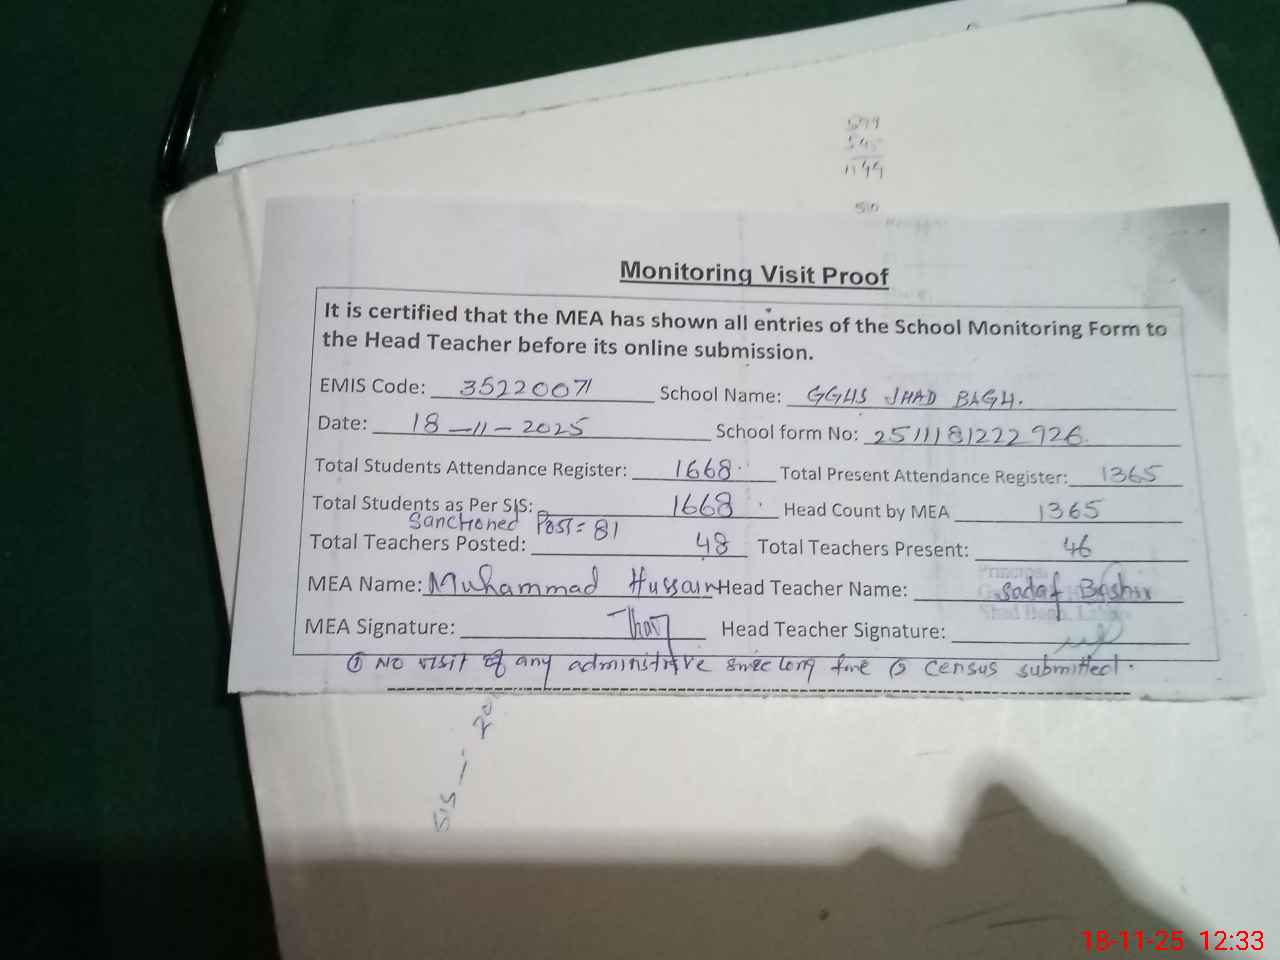 599
545
1144
510
Monitoring Visit Proof
It is certified that the MEA has shown all entries of the School Monitoring Form to
the Head Teacher before its online submission.
EMIS Code: 35220071 School Name: GGHS SHAD BAGH.
Date: 18-11-2025 School form No: 2511181222926
Total Students Attendance Register: 1668 Total Present Attendance Register: 1365
Total Students as Per SIS: 1668 Head Count by MEA 1365
Sanctioned Post = 81
Total Teachers Posted: 48 Total Teachers Present: 46
MEA Name: Muhammad Hussain Head Teacher Name: Sadaf Bashir
Principal
Shad Bagh, Lahore
MEA Signature: Head Teacher Signature:
① NO visit of any administrive since long time ② Census submitted.
18-11-25 12:33